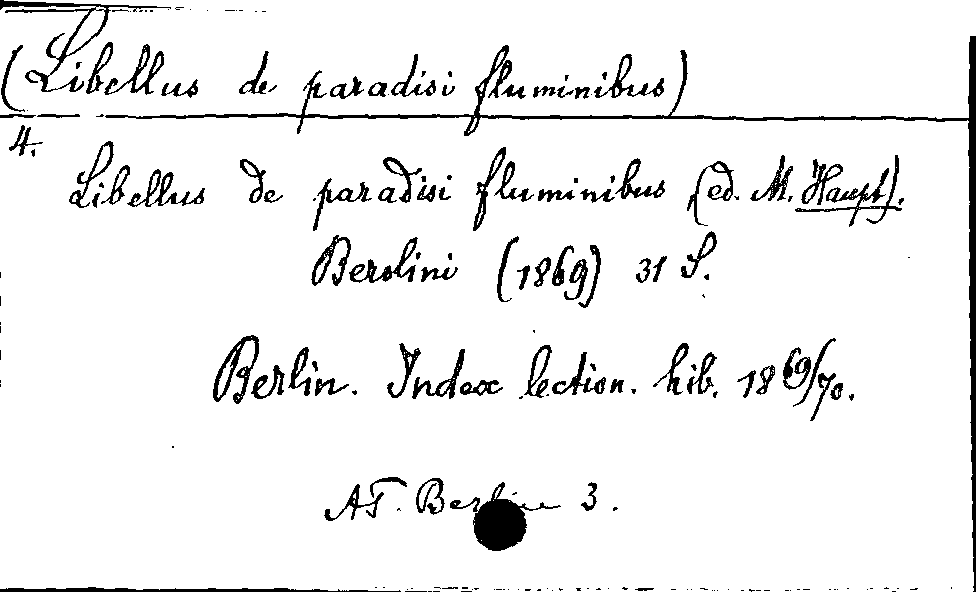 (Libellus de paradisi fluminibus)
4.
Libellus de paradisi fluminibus (ed. M. Haupt).
Berolini (1869) 31 S.
Berlin. Index lection. hib. 1869/70.
3.